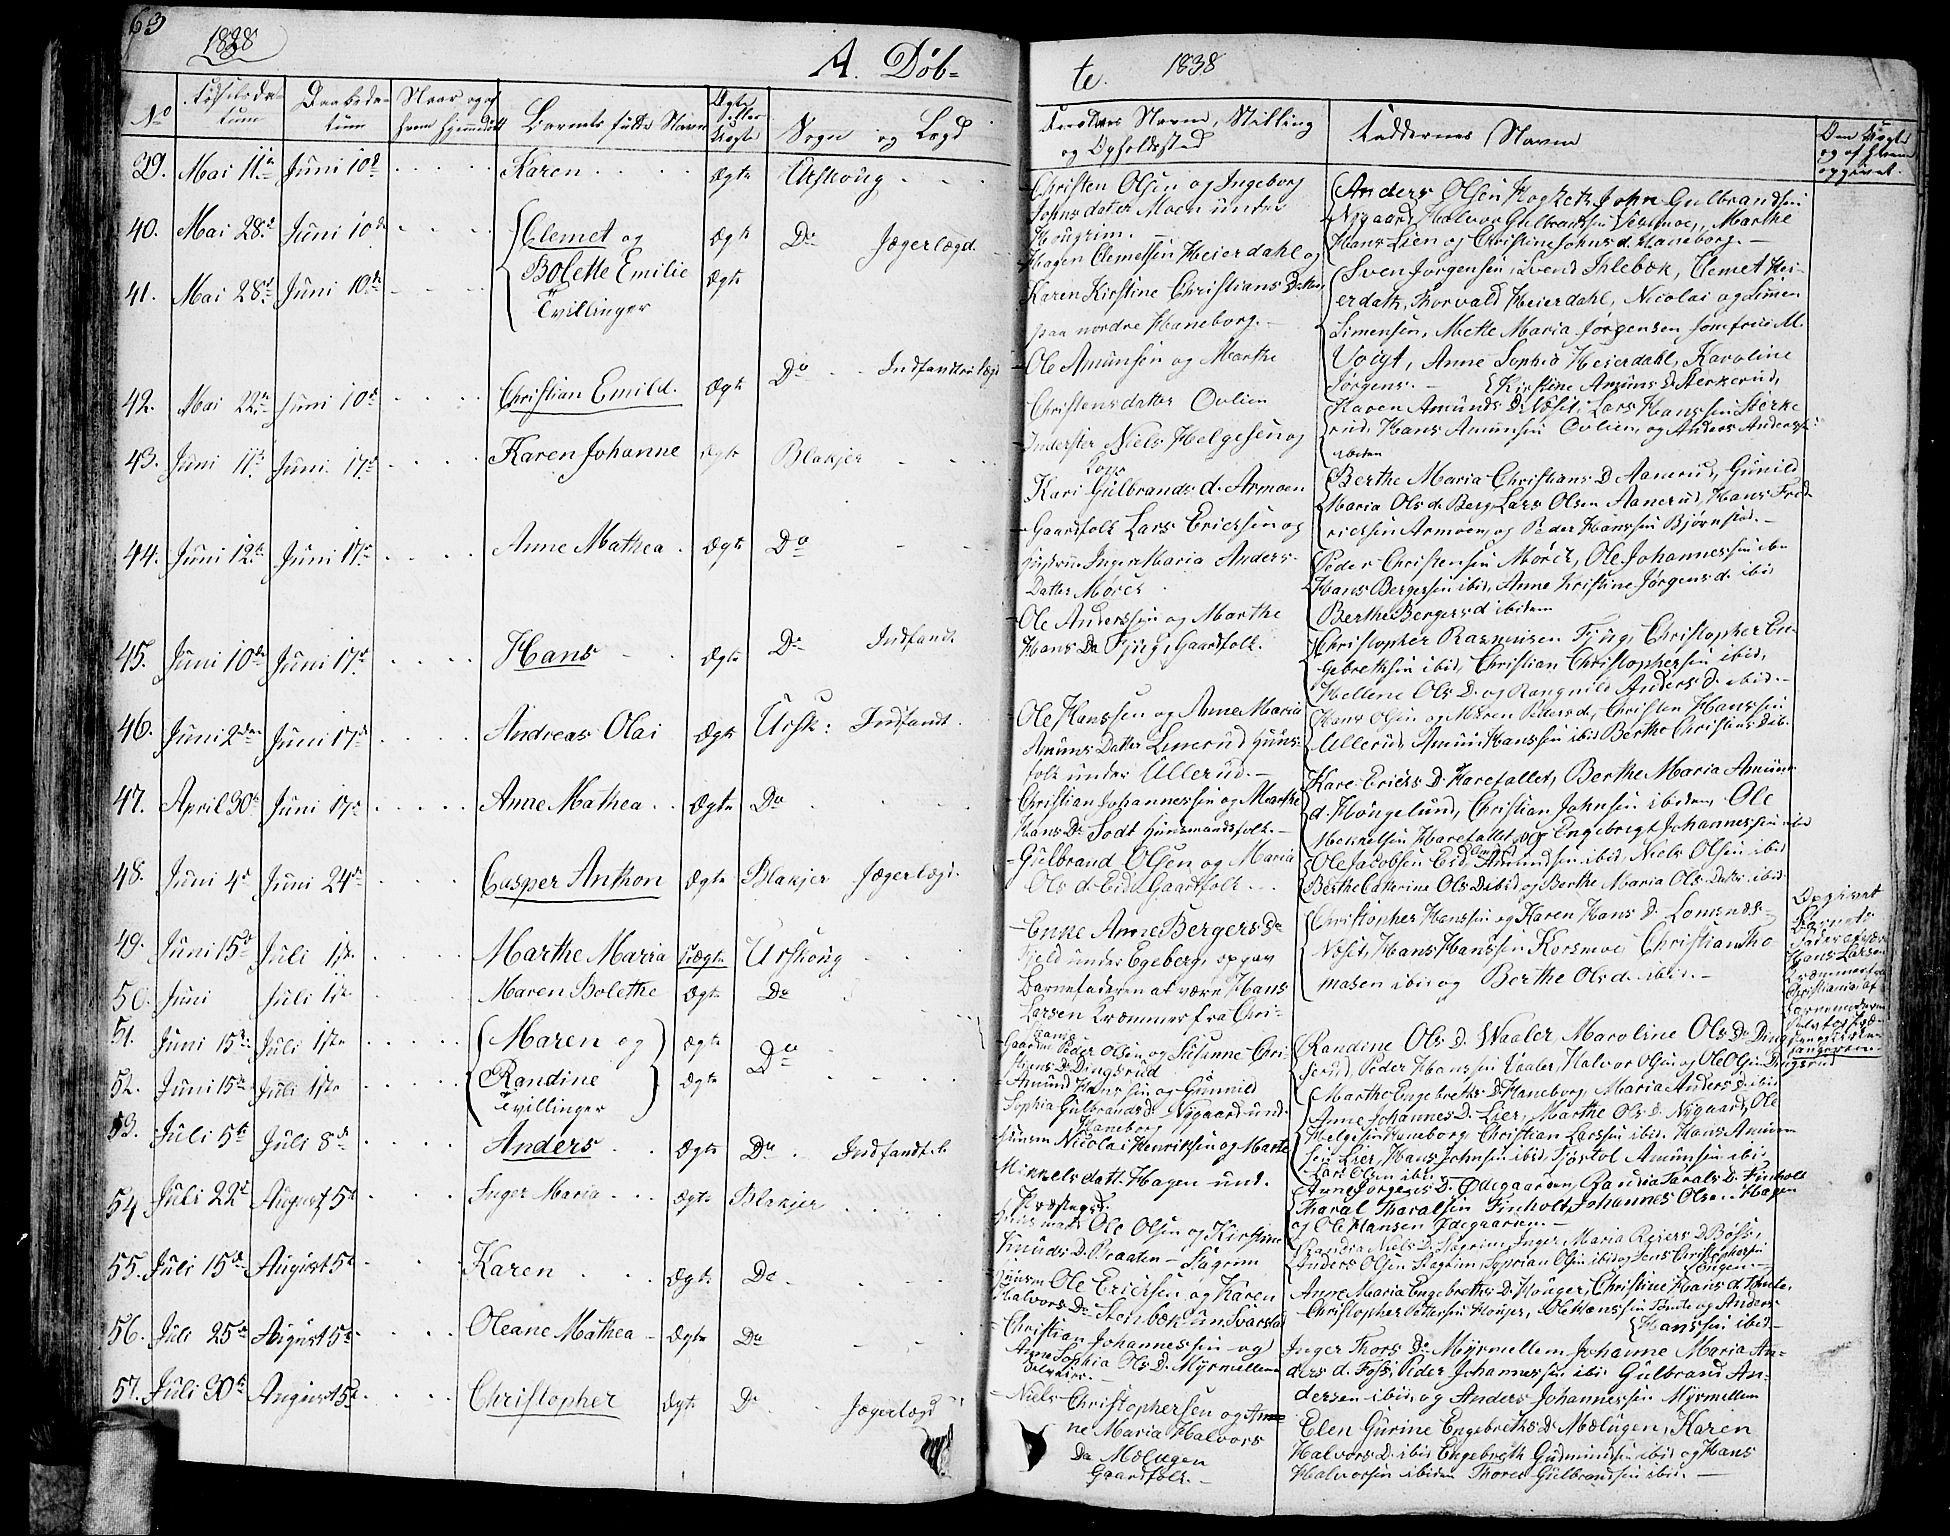 63
1838
A. Döb=
te. 1838
No
Födselsda-
tum
Daabsda-
tum
Naar og af
hvem hjemmedöbt
Barnets fulde Navn
Ægte
eller
Uægte
Sogn og Lægd
Forældres Navne, Stilling
og Opholdssted
Faddernes Navne
39. Mai 11te Juni 10de Karen Ægte Urskoug
Christen Olsen og Ingeborg
Johnsdatter Moen under
Hougrim.
Anders Olsen John Gulbrandsen
Nÿgaard, Halvor Gulbrandsen Marthe
Hans Lien og Christine Johns d. Haneborg.
40. Mai 28de Juni 10de Clemet og Ægte Do Jægerlægd
41. Mai 28de Juni 10de Bolette Emilie Ægte
Tvillinger
Hagen Clemetsen Heierdahl og
Karen Kirstine Christians Datter
paa nordre Haneborg.
Sven Jørgensen, Clemet Hei-
erdahl, Thorvald Heierdahl, Nicolai og Simen
Simensen, Mette Maria Jørgensen Jomfru M.
Voigt, Anne Sophia Heierdahl, Karoline
Jørgens.
42. Mai 22de Juni 10de Christian Emild. Ægte Do
Ole Amunsen og Marthe
Christensdatter Ovlien
Kirstine Amuns D. Sterkerud,
Karen Amunds D. Næset, Lars Hanssen Sterke
rud, Hans Amunsen Ovlien, og Anders Anderss
ibiden
43. Juni 11te Juni 17de Karen Johanne Ægte Blakjer
Inderster Niels Helgesen og
Kari Gulbrands d. Armoen
Berthe Maria Christians D Aanerud, Gunild
Maria Ols d. Berg, Lars Olsen Aanerud, Hans Fred-
ricksen Armoen, og Peder Hanssen Bjørnstad.
44. Juni 12te Juni 17de Anne Mathea Ægte Do
Gaardfolk Lars Ericksen og
Inger Maria Anders-
Datter Mörer
Peder Christensen Mörer, Ole Johannessen ibn
Hans Bergersen ibid, Anne Kristine Jørgens d. ibid
Berthe Bergers d ibidem
45. Juni 10de Juni 17de Hans Ægte Do Indfandt
Ole Anderssen og Marthe
Hans Da Fjug, Gaardfolk.
Christopher Rasmusen Fjug, Christopher En-
gebretsen ibid, Christian Christophersen ibid,
Hellene Ols D. og Rangnild Anders D. ibid.
46. Juni 2den Juni 17de Andreas Olai Ægte Ursk: Indfandt.
Ole Hanssen og Anne Maria
Amuns Datter Linerud Huus-
folk under Ullerud.
Hans Olsen og Maren Peders d, Christen Hanssen
Ullerud, Amun Hanssen ibid Berthe Christians D ib.
47. April 30te Juni 17de Anne Mathea Ægte Do
Christian Johannessen og Marthe
Hans Dr Sodt Huusmandsfolk.
Kare Ericks D. Harefallet, Berthe Maria Amun
d. Hougelund, Christian Johnsen ibidem, Ole
Harefallet og Engebregt Johannessen ibid
48. Juni 4de Juni 24de Casper Anthon Ægte Blakjer Jægerlægd.
Gulbrand Olsen og Maria
Ols d. Eid, Gaardfolk
Ole Jacobsen Eid, Amundsen ibid, Niels Olsen ibid
Berthe Catherine Ols D ibid og Berthe Maria Ols Datter ibid
49. Juni 15de Juli 1ste Marthe Maria Uægte Urskoug
Enke Anne Bergers Da
Fjeld under Egeberg, opgav
Barnefaderen at være Hans
Larsen Kræmmer fra Chri-
stiania
Christopher Hanssen og Karen Hans D. Lomsnæs-
Næset, Hans Hanssen Korsmoe Christian Tho
masen ibid og Berthe Ols d. ibid.
Opgivet
Barnets
Fader at være
Hans Larsen
Kræmmer fra
Christiania, af
Barnemoderen
50. Juni Juli 1ste Maren Bolethe Ægte Do
51. Juni 15de Juli 1ste Maren og Ægte Do
52. Juni 15de Juli 1ste Randine Ægte
Tvillinger
Gaardm Peder Olsen og Susanne Chri-
stens Dr Dingsrud
Randine Ols D. Waaler Maroline Ols Dr Ding
serud, Peder Hanssen Vaaler, Halvor Olsen og Ole Olsen Dingsrud
53. Juli 5te Juli 8de Anders Ægte Do Indfandt.l.
Amund Hanssen og Gunnild
Sophia Gulbrands d. Nÿgaard und.
Haneborg
Marthe Engebreths D. Haneborg, Maria Anders D. ibid
Anne Johannes D. Lier, Marthe Ols D. Nÿgaard, Ole
Helgesen Haneborg, Christian Larssen ibid. Hans Amun
sen Lier, Hans Johnsen ibid, Tjøstol Amunsen ibid,
Lars Olsen ibid.
54 Juli 22de August 5te Inger Maria Ægte Blakjer
Huusm Nicolai Henriksen og Marte
Mikkels datt. Hagen und.
Anne Jørgens D. Ödegaarden, Randia Tarals D. Finholt
Tharal Tharalsen Finholt, Johannes Olsen Hagen
og Ole Hansen Ödegaarden.
55. Juli 15de August 5te Karen Ægte Do
Ole Olsen og Kirstine
Knuds D. Braaten Slagrim
Randia Niels D. Slagrim, Inger Maria Reiers D Böss,
Anders Olsen Slagrim, Syprian Olsen ibid og Jens Christophersen
Engen
56. Juli 25de August 5te Oleane Mathea Ægte Do
Huusm Ole Ericksen og Karen
Halvors Dr Stenbek un Svarstad
Anne Maria Engebreths D. Houger, Christine Hans d. Tømte,
Christopher Pettersen Houger, Ole Hanssen Tømte og Anders
Hanssen ibid
Christian Johannessen og
Anne Sophia Ols D. Myrmellem
Inger Thors Dr Myrmellem Johanne Maria An-
ders d. Foss, Peder Johannessen ibid Gulbrand An-
dersen ibid, og Anders Johannessen Myrmellem
57. Juli 30te August 5te Christopher Ægte Do Jægerlægd
Niels Christophersen og An
ne Maria Halvors
Da Mælugen
Gaardfolk.
Elen Gurine Engebreths D. Mælugen, Karen
Halvors D. ibid Engebreth Gudmundsen ibid og Hans
Halvorsen ibidem Thorer Gulbrandsen ibid.